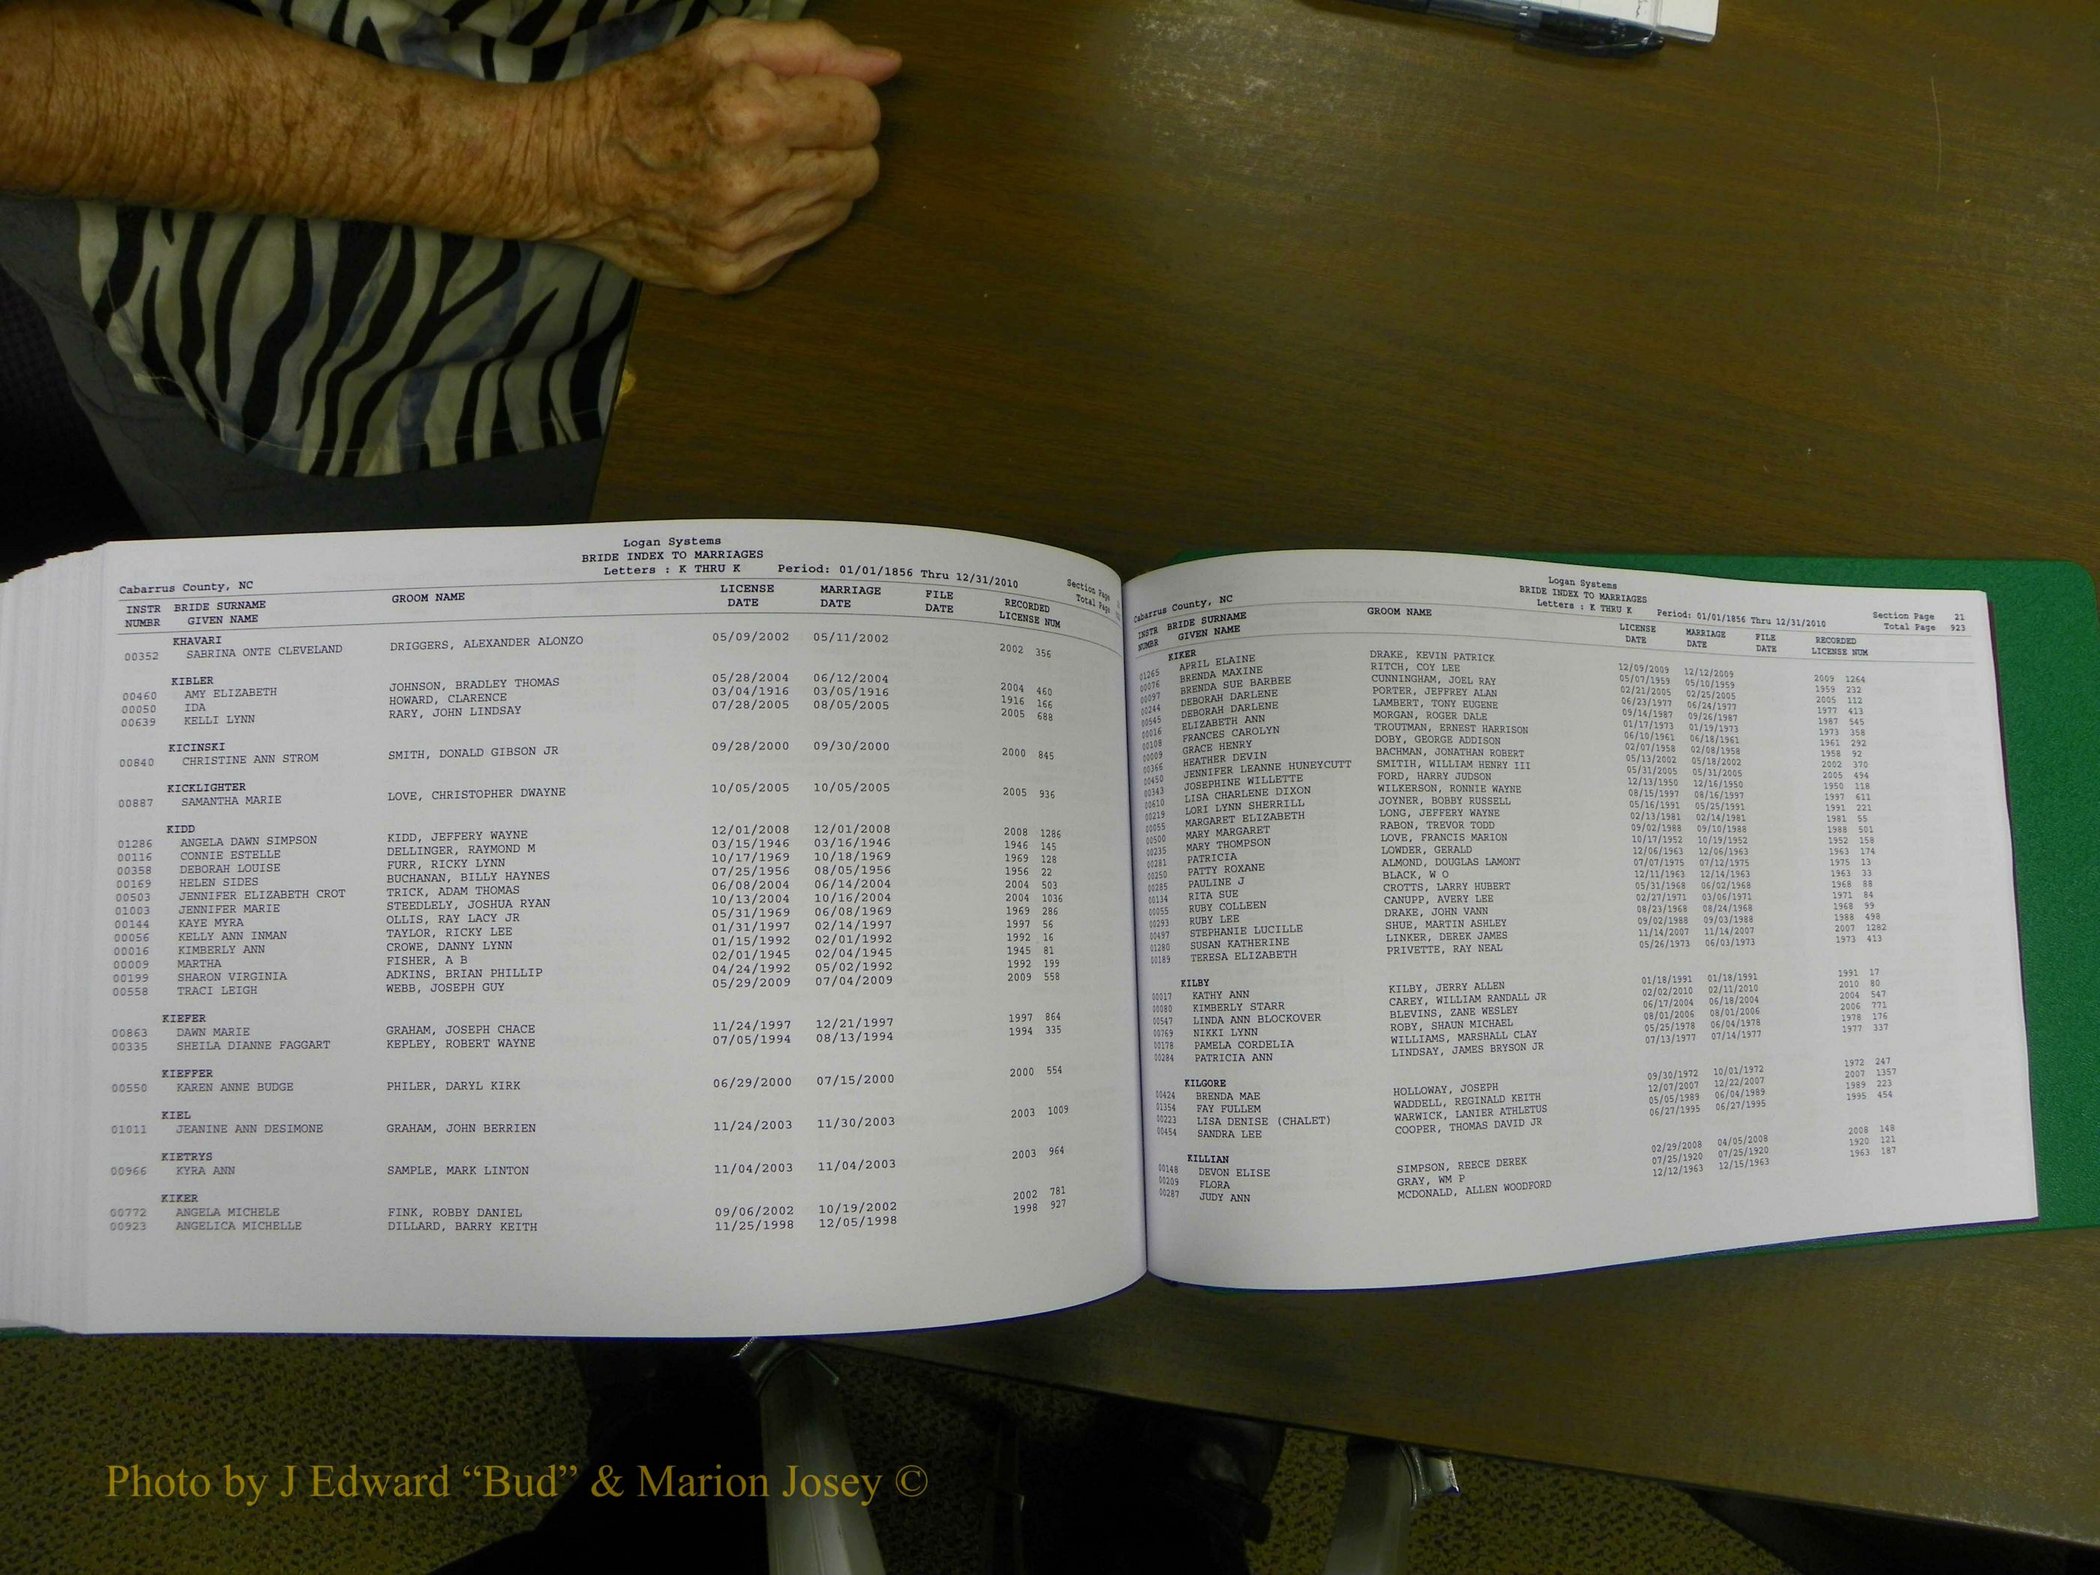 Logan Systems
BRIDE INDEX TO MARRIAGES
Letters : K THRU K Period: 01/01/1856 Thru 12/31/2010
Cabarrus County, NC Section Page
Total Page
INSTR BRIDE SURNAME GROOM NAME LICENSE MARRIAGE FILE RECORDED
NUMBR GIVEN NAME DATE DATE DATE LICENSE NUM
KHAVARI
00352 SABRINA ONTE CLEVELAND DRIGGERS, ALEXANDER ALONZO 05/09/2002 05/11/2002 2002 356
KIBLER
00460 AMY ELIZABETH JOHNSON, BRADLEY THOMAS 05/28/2004 06/12/2004 2004 460
00050 IDA HOWARD, CLARENCE 03/04/1916 03/05/1916 1916 166
00639 KELLI LYNN RARY, JOHN LINDSAY 07/28/2005 08/05/2005 2005 688
KICINSKI
00840 CHRISTINE ANN STROM SMITH, DONALD GIBSON JR 09/28/2000 09/30/2000 2000 845
KICKLIGHTER
00887 SAMANTHA MARIE LOVE, CHRISTOPHER DWAYNE 10/05/2005 10/05/2005 2005 936
KIDD
01286 ANGELA DAWN SIMPSON KIDD, JEFFERY WAYNE 12/01/2008 12/01/2008 2008 1286
00116 CONNIE ESTELLE DELLINGER, RAYMOND M 03/15/1946 03/16/1946 1946 145
00358 DEBORAH LOUISE FURR, RICKY LYNN 10/17/1969 10/18/1969 1969 128
00169 HELEN SIDES BUCHANAN, BILLY HAYNES 07/25/1956 08/05/1956 1956 22
00503 JENNIFER ELIZABETH CROT TRICK, ADAM THOMAS 06/08/2004 06/14/2004 2004 503
01003 JENNIFER MARIE STEEDLELY, JOSHUA RYAN 10/13/2004 10/16/2004 2004 1036
00144 KAYE MYRA OLLIS, RAY LACY JR 05/31/1969 06/08/1969 1969 286
00056 KELLY ANN INMAN TAYLOR, RICKY LEE 01/31/1997 02/14/1997 1997 56
00016 KIMBERLY ANN CROWE, DANNY LYNN 01/15/1992 02/01/1992 1992 16
00009 MARTHA FISHER, A B 02/01/1945 02/04/1945 1945 81
00199 SHARON VIRGINIA ADKINS, BRIAN PHILLIP 04/24/1992 05/02/1992 1992 199
00558 TRACI LEIGH WEBB, JOSEPH GUY 05/29/2009 07/04/2009 2009 558
KIEFER
00863 DAWN MARIE GRAHAM, JOSEPH CHACE 11/24/1997 12/21/1997 1997 864
00335 SHEILA DIANNE FAGGART KEPLEY, ROBERT WAYNE 07/05/1994 08/13/1994 1994 335
KIEFFER
00550 KAREN ANNE BUDGE PHILER, DARYL KIRK 06/29/2000 07/15/2000 2000 554
KIEL
01011 JEANINE ANN DESIMONE GRAHAM, JOHN BERRIEN 11/24/2003 11/30/2003 2003 1009
KIETRYS
00966 KYRA ANN SAMPLE, MARK LINTON 11/04/2003 11/04/2003 2003 964
KIKER
00772 ANGELA MICHELE FINK, ROBBY DANIEL 09/06/2002 10/19/2002 2002 781
00923 ANGELICA MICHELLE DILLARD, BARRY KEITH 11/25/1998 12/05/1998 1998 927
Logan Systems
BRIDE INDEX TO MARRIAGES
Letters : K THRU K Period: 01/01/1856 Thru 12/31/2010
Cabarrus County, NC Section Page 21
Total Page 923
INSTR BRIDE SURNAME GROOM NAME LICENSE MARRIAGE FILE RECORDED
NUMBR GIVEN NAME DATE DATE DATE LICENSE NUM
KIKER
01265 APRIL ELAINE DRAKE, KEVIN PATRICK 12/09/2009 12/12/2009 2009 1264
00076 BRENDA MAXINE RITCH, COY LEE 05/07/1959 05/10/1959 1959 232
00097 BRENDA SUE BARBEE CUNNINGHAM, JOEL RAY 02/21/2005 02/25/2005 2005 112
00244 DEBORAH DARLENE PORTER, JEFFREY ALAN 06/23/1977 06/24/1977 1977 413
00545 DEBORAH DARLENE LAMBERT, TONY EUGENE 09/14/1987 09/26/1987 1987 545
00016 ELIZABETH ANN MORGAN, ROGER DALE 01/17/1973 01/19/1973 1973 358
00108 FRANCES CAROLYN TROUTMAN, ERNEST HARRISON 06/10/1961 06/18/1961 1961 292
00009 GRACE HENRY DOBY, GEORGE ADDISON 02/07/1958 02/08/1958 1958 92
00366 HEATHER DEVIN BACHMAN, JONATHAN ROBERT 05/13/2002 05/18/2002 2002 370
00450 JENNIFER LEANNE HUNEYCUTT SMITIH, WILLIAM HENRY III 05/31/2005 05/31/2005 2005 494
00343 JOSEPHINE WILLETTE FORD, HARRY JUDSON 12/13/1950 12/16/1950 1950 118
00610 LISA CHARLENE DIXON WILKERSON, RONNIE WAYNE 08/15/1997 08/16/1997 1997 611
00219 LORI LYNN SHERRILL JOYNER, BOBBY RUSSELL 05/16/1991 05/25/1991 1991 221
00055 MARGARET ELIZABETH LONG, JEFFERY WAYNE 02/13/1981 02/14/1981 1981 55
00500 MARY MARGARET RABON, TREVOR TODD 09/02/1988 09/10/1988 1988 501
00235 MARY THOMPSON LOVE, FRANCIS MARION 10/17/1952 10/19/1952 1952 158
00281 PATRICIA LOWDER, GERALD 12/06/1963 12/06/1963 1963 174
00250 PATTY ROXANE ALMOND, DOUGLAS LAMONT 07/07/1975 07/12/1975 1975 13
00285 PAULINE J BLACK, W O 12/11/1963 12/14/1963 1963 33
00134 RITA SUE CROTTS, LARRY HUBERT 05/31/1968 06/02/1968 1968 88
00055 RUBY COLLEEN CANUPP, AVERY LEE 02/27/1971 03/06/1971 1971 84
00293 RUBY LEE DRAKE, JOHN VANN 08/23/1968 08/24/1968 1968 99
00497 STEPHANIE LUCILLE SHUE, MARTIN ASHLEY 09/02/1988 09/03/1988 1988 498
01280 SUSAN KATHERINE LINKER, DEREK JAMES 11/14/2007 11/14/2007 2007 1282
00189 TERESA ELIZABETH PRIVETTE, RAY NEAL 05/26/1973 06/03/1973 1973 413
KILBY
00017 KATHY ANN KILBY, JERRY ALLEN 01/18/1991 01/18/1991 1991 17
00080 KIMBERLY STARR CAREY, WILLIAM RANDALL JR 02/02/2010 02/11/2010 2010 80
00547 LINDA ANN BLOCKOVER BLEVINS, ZANE WESLEY 06/17/2004 06/18/2004 2004 547
00769 NIKKI LYNN ROBY, SHAUN MICHAEL 08/01/2006 08/01/2006 2006 771
00178 PAMELA CORDELIA WILLIAMS, MARSHALL CLAY 05/25/1978 06/04/1978 1978 176
00284 PATRICIA ANN LINDSAY, JAMES BRYSON JR 07/13/1977 07/14/1977 1977 337
KILGORE
00424 BRENDA MAE HOLLOWAY, JOSEPH 09/30/1972 10/01/1972 1972 247
01354 FAY FULLEM WADDELL, REGINALD KEITH 12/07/2007 12/22/2007 2007 1357
00223 LISA DENISE (CHALET) WARWICK, LANIER ATHLETUS 05/05/1989 06/04/1989 1989 223
00454 SANDRA LEE COOPER, THOMAS DAVID JR 06/27/1995 06/27/1995 1995 454
KILLIAN
00148 DEVON ELISE SIMPSON, REECE DEREK 02/29/2008 04/05/2008 2008 148
00209 FLORA GRAY, WM P 07/25/1920 07/25/1920 1920 121
00287 JUDY ANN MCDONALD, ALLEN WOODFORD 12/12/1963 12/15/1963 1963 187
Photo by J Edward “Bud” & Marion Josey ©